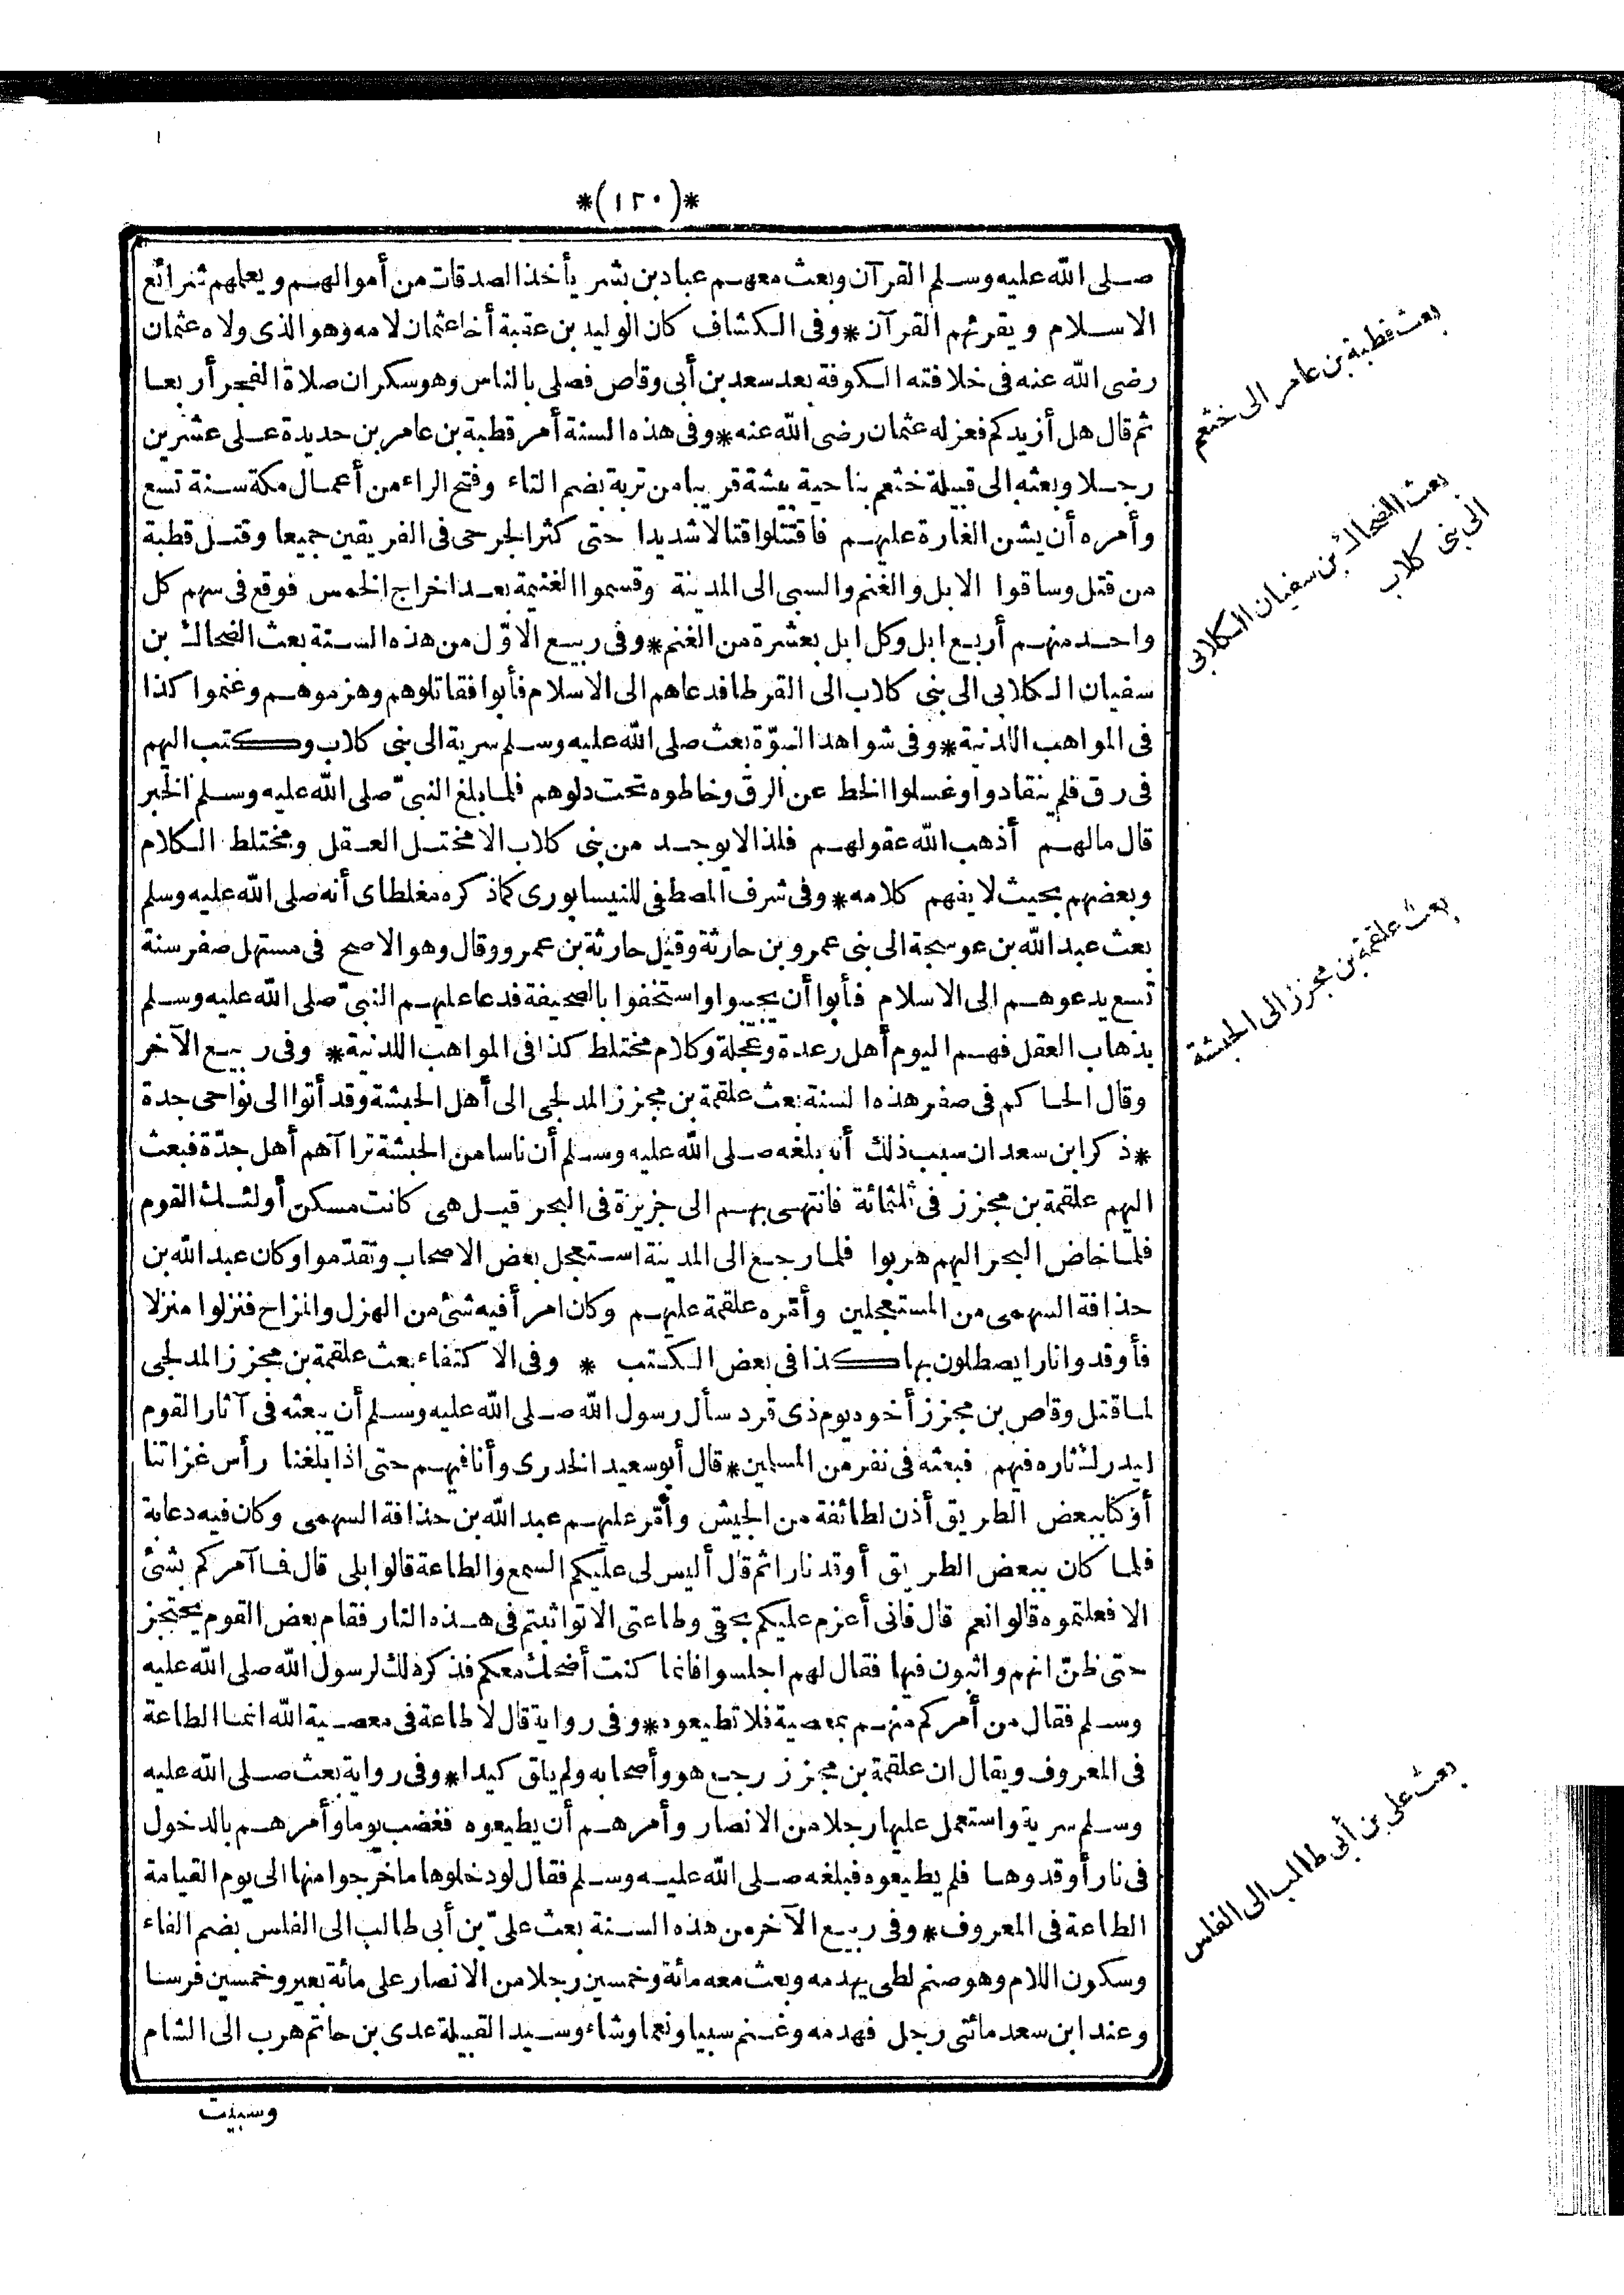 *(١٢٠)*
صلى الله عليه وسلم القرآن وبعث معهم عباد بن بشر يأخذ الصدقات من أموالهم ويعلمهم شرائع
الاسلام ويقرئهم القرآن * وفى الكشاف كان الوليد بن عقبة أخا عثمان لامه وهو الذى ولاه عثمان
رضى الله عنه فى خلافته الكوفة بعد سعد بن أبى وقاص فصلى بالناس وهو سكران صلاة الفجر أربعا
ثم قال هل أزيدكم فعزله عثمان رضى الله عنه * وفى هذه السنة أمر قطبة بن عامر بن حديدة على عشرين
رجلا وبعثه الى قبيلة خثعم بناحية بيشة قريبا من تربة بضم التاء وفتح الراء من أعمال مكة سنة تسع
وأمره أن يشن الغارة عليهم فاقتتلوا قتالا شديدا حتى كثر الجرحى فى الفريقين جميعا وقتل قطبة
من قتل وساقوا الابل والغنم والسبى الى المدينة وقسموا الغنيمة بعد اخراج الخمس فوقع فى سهم كل
واحد منهم أربع ابل وكل ابل بعشرة من الغنم * وفى ربيع الاوّل من هذه السنة بعث الضحاك بن
سفيان الكلابى الى بنى كلاب الى القرطا فدعاهم الى الاسلام فأبوا فقاتلوهم وهزموهم وغنموا كذا
فى المواهب اللدنية * وفى شواهد النبوّة بعث صلى الله عليه وسلم سرية الى بنى كلاب وكتب اليهم
فى رق فلم ينقادوا وغسلوا الخط عن الرق وخاطوه تحت دلوهم فلما بلغ النبىّ صلى الله عليه وسلم الخبر
قال مالهم أذهب الله عقولهم فلذا لا يوجد من بنى كلاب الا مختل العقل ومختلط الكلام
وبعضهم بحيث لا يفهم كلامه * وفى شرف المصطفى للنيسابورى كما ذكره مغلطاى أنه صلى الله عليه وسلم
بعث عبد الله بن عوسجة الى بنى عمرو بن حارثة وقيل حارثة بن عمرو وقال وهو الاصح فى مستهل صفر سنة
تسع يدعوهم الى الاسلام فأبوا أن يجيبوا واستخفوا بالصحيفة فدعا عليهم النبىّ صلى الله عليه وسلم
بذهاب العقل فهم اليوم أهل رعدة وعجلة وكلام مختلط كذا فى المواهب اللدنية * وفى ربيع الآخر
وقال الحاكم فى صفر هذه السنة بعث علقمة بن مجزز المدلجى الى أهل الحبشة وقد أتوا الى نواحى جدة
* ذكر ابن سعد ان سبب ذلك أنه بلغه صلى الله عليه وسلم أن ناسا من الحبشة تراآهم أهل جدّة فبعث
اليهم علقمة بن مجزز فى ثلثمائة فانتهى بهم الى جزيرة فى البحر قيل هى كانت مسكن أولئك القوم
فلما خاض البحر اليهم هربوا فلما رجع الى المدينة استعجل بعض الاصحاب وتقدّموا وكان عبد الله بن
حذافة السهمى من المستعجلين وأمّره علقمة عليهم وكان امرأ فيه شئ من الهزل والمزاح فنزلوا منزلا
فأوقدوا نارا يصطلون بها كذا فى بعض الكتب * وفى الاكتفاء بعث علقمة بن مجزز المدلجى
لما قتل وقاص بن مجزز أخوه يوم ذى قرد سأل رسول الله صلى الله عليه وسلم أن يبعثه فى آثار القوم
ليدرك ثاره فيهم فبعثه فى نفر من المسلمين * قال أبو سعيد الخدرى وأنا فيهم حتى اذا بلغنا رأس غزاتنا
أو كنا ببعض الطريق أذن لطائفة من الجيش وأمّر عليهم عبد الله بن حذافة السهمى وكان فيه دعابة
فلما كان ببعض الطريق أوقد نارا ثم قال أليس لى عليكم السمع والطاعة قالوا بلى قال فما آمركم بشئ
الا فعلتموه قالوا نعم قال فانى أعزم عليكم بحقى وطاعتى الا تواثبتم فى هذه النار فقام بعض القوم يحتجز
حتى ظنّ انهم واثبون فيها فقال لهم اجلسوا فانما كنت أضحك معكم فذكر ذلك لرسول الله صلى الله عليه
وسلم فقال من أمركم منهم بمعصية فلا تطيعوه * وفى رواية قال لا طاعة فى معصية الله انما الطاعة
فى المعروف ويقال ان علقمة بن مجزز رجع هو وأصحابه ولم يلق كيدا * وفى رواية بعث صلى الله عليه
وسلم سرية واستعمل عليها رجلا من الانصار وأمرهم أن يطيعوه فغضب يوما وأمرهم بالدخول
فى نار أوقدوها فلم يطيعوه فبلغه صلى الله عليه وسلم فقال لو دخلوها ما خرجوا منها الى يوم القيامة
الطاعة فى المعروف * وفى ربيع الآخر من هذه السنة بعث علىّ بن أبى طالب الى الفلس بضم الفاء
وسكون اللام وهو صنم لطى يهدمه وبعث معه مائة وخمسين رجلا من الانصار على مائة بعير وخمسين فرسا
وعند ابن سعد مائتى رجل فهدمه وغنم سبيا ونعما وشاء وسيد القبيلة عدى بن حاتم هرب الى الشام
وسبيت
بعث قطبة بن عامر الى خثعم
بعث الضحاك بن سفيان الكلابى
الى بنى كلاب
بعث علقمة بن مجزز الى الحبشة
بعث على بن أبى طالب الى الفلس